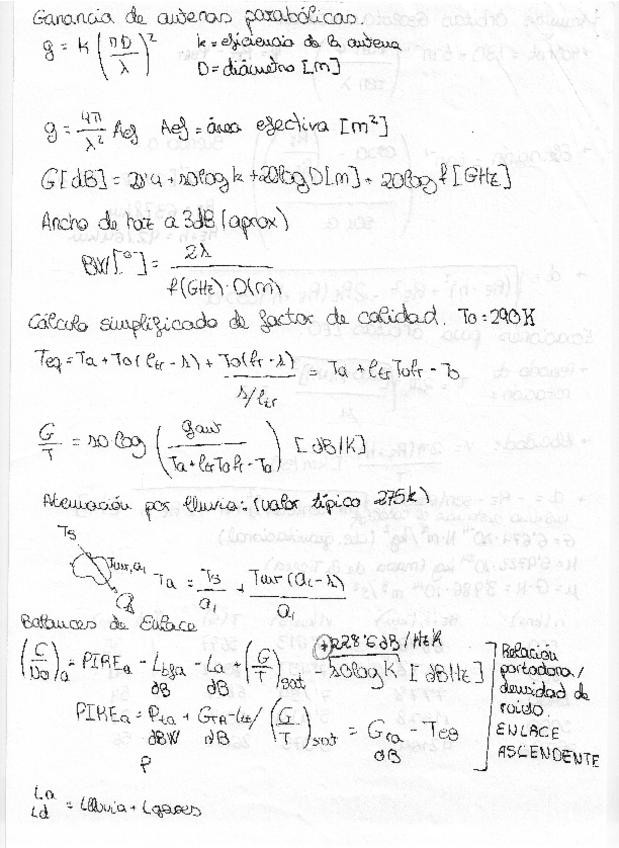 Ganancia de antenas parabólicas.
g = k (πD/λ)² k = eficiencia de la antena
D = diámetro [m]
g = 4π/λ² Aef Aef = área efectiva [m²]
G[dB] = 20'4 + 10 log k + 20 log D[m] + 20 log f [GHz]
Ancho de haz a 3dB (aprox)
BW[°] = 21/(f(GHz)·D(m))
Cálculo simplificado de factor de calidad. To = 290K
Teq = Ta + To(ltr - 1) + To(fr - 1)/(1/ltr) = Ta + ltr To fr - To
G/T = 10 log (gant/(Ta + ltr To fr - To)) [dB/K]
Atenuación por lluvia: (valor típico 275k)
Ts
Tatr, a1
Ta = Ts/a1 + Tatr(a1 - 1)/a1
Balances de Enlace
+228'6 dB/HzK
(C/No)a = PIREa - Lbfa - La + (G/T)sat - 10 log K [dBHz]
dB dB
PIREa = Pta + GTA - Ltt / (G/T)sat = Gra - Teq
dBW dB dB
P
Relación
portadora/
densidad de
ruido.
ENLACE
ASCENDENTE
La
Ld = Llluvia + Lgases